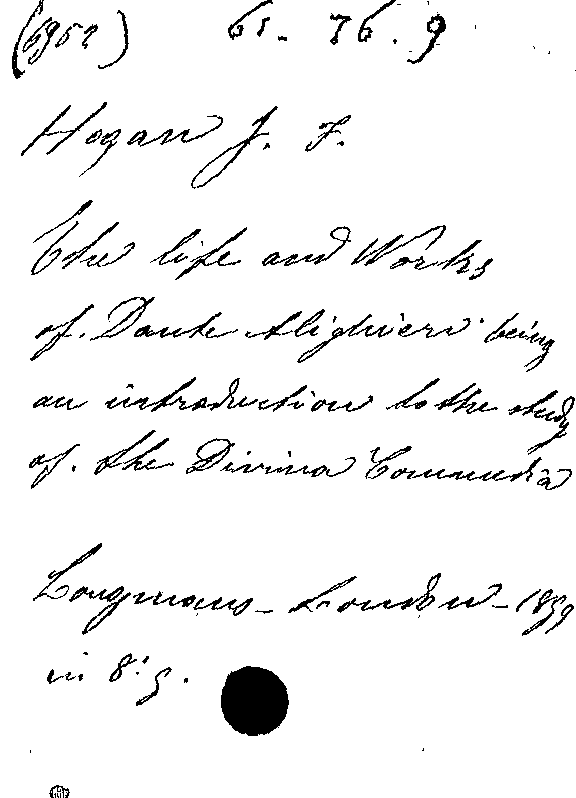 (6952) 61- 76. 9
Hogan J. F.
The life and Works
of. Dante Alighieri being
an introduction to the study
of. the Divina Commedia
Longmans - London - 1899
in 8: g.